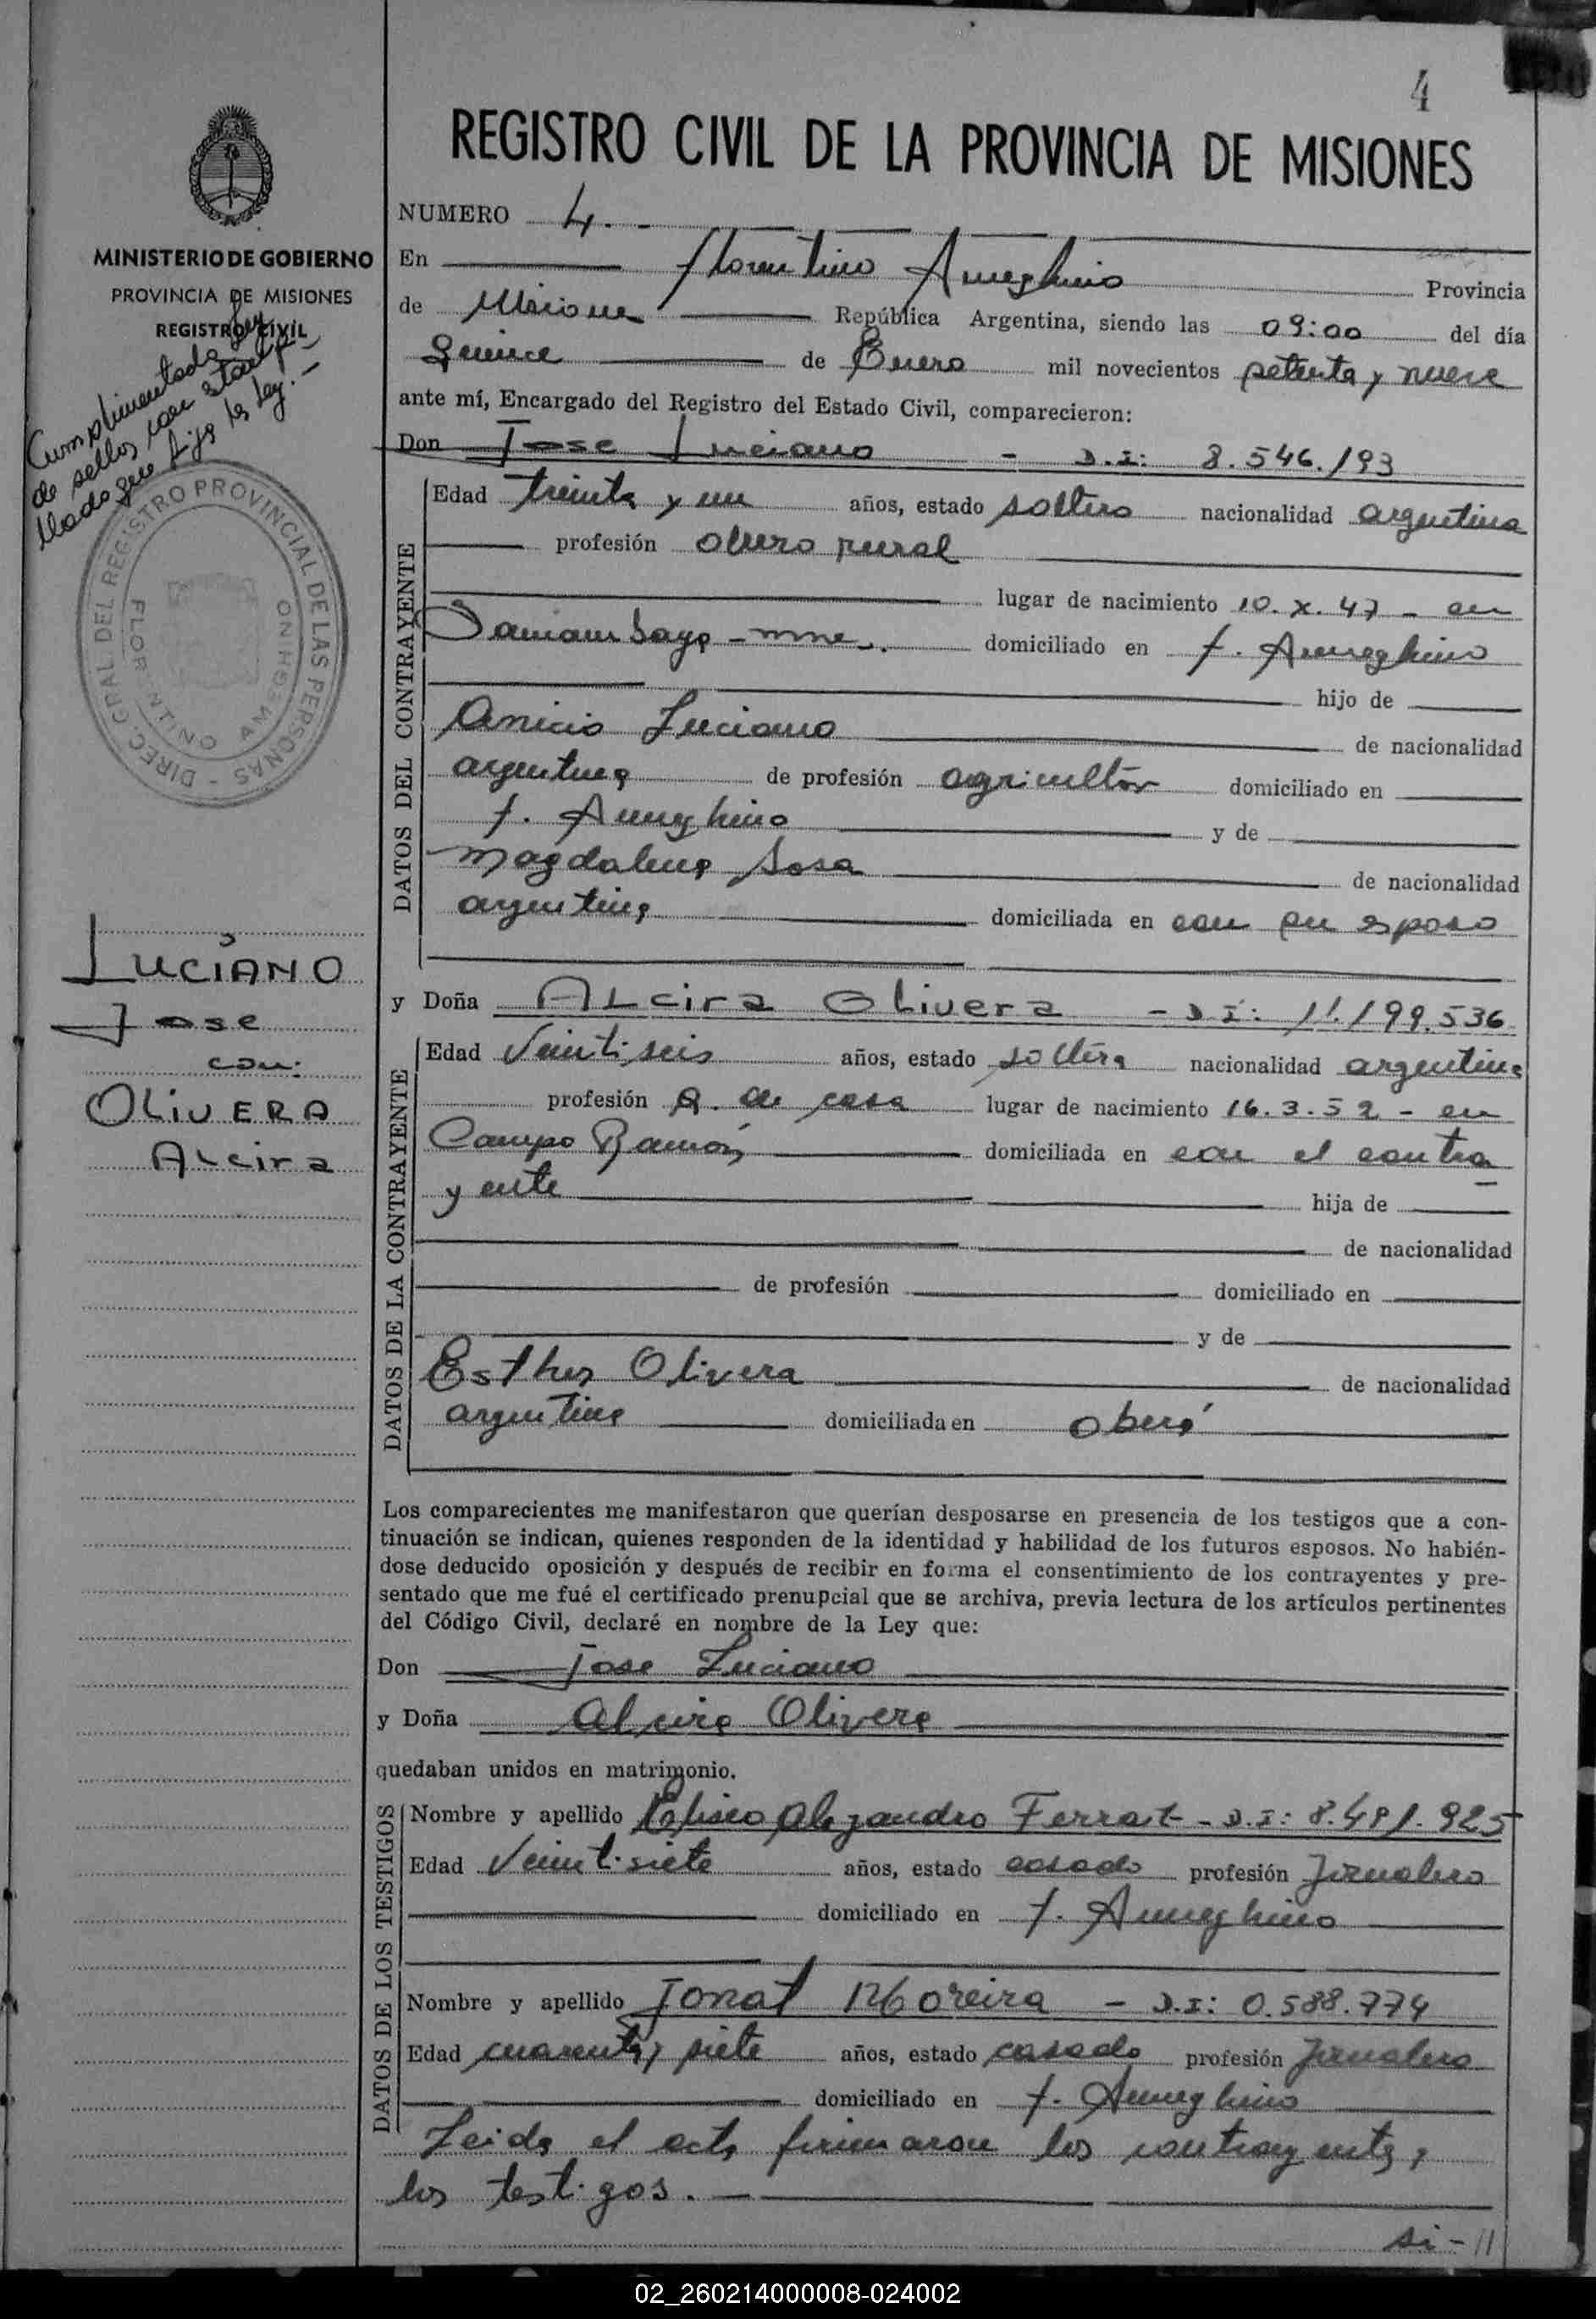 4
REGISTRO CIVIL DE LA PROVINCIA DE MISIONES
MINISTERIO DE GOBIERNO
PROVINCIA DE MISIONES
REGISTRO CIVIL
Cumplimentado ley
de sellos con
llado que fija la ley.-
DIREC. GRAL. DEL REGISTRO PROVINCIAL DE LAS PERSONAS -
FLORENTINO AMEGHINO
LUCIANO
Jose
con:
OLIVERA
Alcira
NUMERO 4.-
En Florentino Ameghino Provincia
de Misiones República Argentina, siendo las 09:00 del día
Quince de Enero mil novecientos setenta y nueve
ante mí, Encargado del Registro del Estado Civil, comparecieron:
Don Jose Luciano - D.I: 8.546.193
DATOS DEL CONTRAYENTE
Edad treinta y un años, estado soltero nacionalidad argentina
profesión obrero rural
lugar de nacimiento 10.X.47 - en
domiciliado en f. Ameghino
hijo de
Anicio Luciano de nacionalidad
argentina de profesión agricultor domiciliado en
f. Ameghino y de
Magdalena Sosa de nacionalidad
argentina domiciliada en con su esposo
y Doña ALcira OLivera - D I: 11.199.536
DATOS DE LA CONTRAYENTE
Edad Veintiseis años, estado soltera nacionalidad argentina
profesión A. de casa lugar de nacimiento 16.3.52 - en
Campo Ramón domiciliada en con el contra
yente hija de
de nacionalidad
de profesión domiciliado en
y de
Esther Olivera de nacionalidad
argentina domiciliada en oberá
Los comparecientes me manifestaron que querían desposarse en presencia de los testigos que a con-
tinuación se indican, quienes responden de la identidad y habilidad de los futuros esposos. No habién-
dose deducido oposición y después de recibir en forma el consentimiento de los contrayentes y pre-
sentado que me fué el certificado prenupcial que se archiva, previa lectura de los artículos pertinentes
del Código Civil, declaré en nombre de la Ley que:
Don Jose Luciano
y Doña Alcira Olivera
quedaban unidos en matrimonio.
DATOS DE LOS TESTIGOS
Nombre y apellido Eliseo Alejandro Ferrat - D.I: 8.491.925
Edad Veintisiete años, estado casado profesión Jornalero
domiciliado en f. Ameghino
Nombre y apellido Jonat Moreira - D.I: 0.588.774
Edad cuarenta y siete años, estado casado profesión Jornalero
domiciliado en f. Ameghino
Leida el acta firmaron los contrayentes y
los testigos.-
si-//
02_260214000008-024002